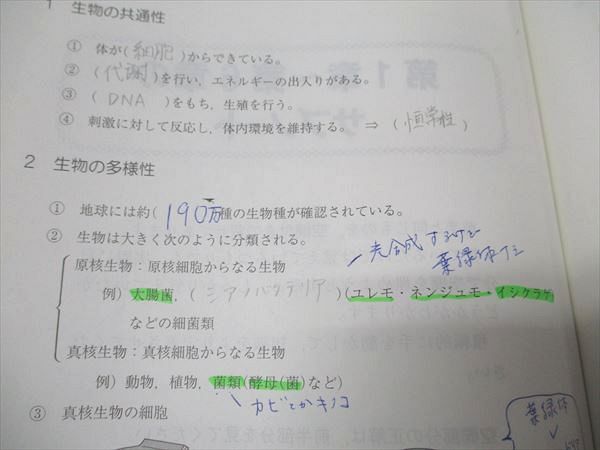 1 生物の共通性
① 体が(細胞)からできている。
② (代謝)を行い，エネルギーの出入りがある。
③ (DNA)をもち，生殖を行う。
④ 刺激に対して反応し，体内環境を維持する。 ⇒ (恒常性)
2 生物の多様性
① 地球には約(190万種の生物種が確認されている。
② 生物は大きく次のように分類される。
光合成するけど
葉緑体なし
原核生物：原核細胞からなる生物
例）大腸菌，(シアノバクテリア)(ユレモ・ネンジュモ・イシクラゲ
などの細菌類
真核生物：真核細胞からなる生物
例）動物，植物，菌類(酵母(菌)など)
カビとかキノコ
③ 真核生物の細胞
葉緑体